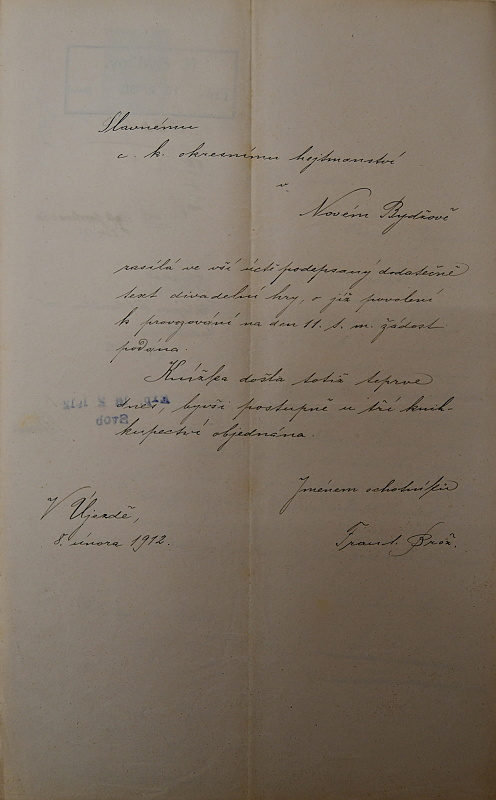 Slavnému
c. k. okresnímu hejtmanství
v
Novém Bydžově
zasílá ve vší úctě podepsaný dodatečně
text divadelní hry, o jíž povolení
k provozování na den 11. t. m. žádost
podána.
Knížka došla totiž teprve
dnes, byvši postupně u tří knih-
kupectví objednána.
Jménem ochotníků
V Újezdě,
8. února 1912.
Frant. Brož.